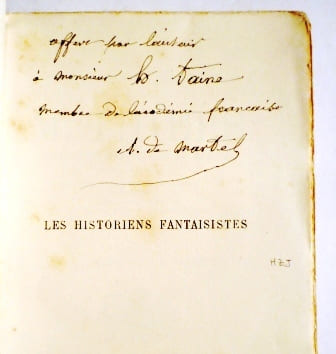 offert par l'auteur
à monsieur h. taine
membre de l'académie française
A. de martel
LES HISTORIENS FANTAISISTES
HZJ